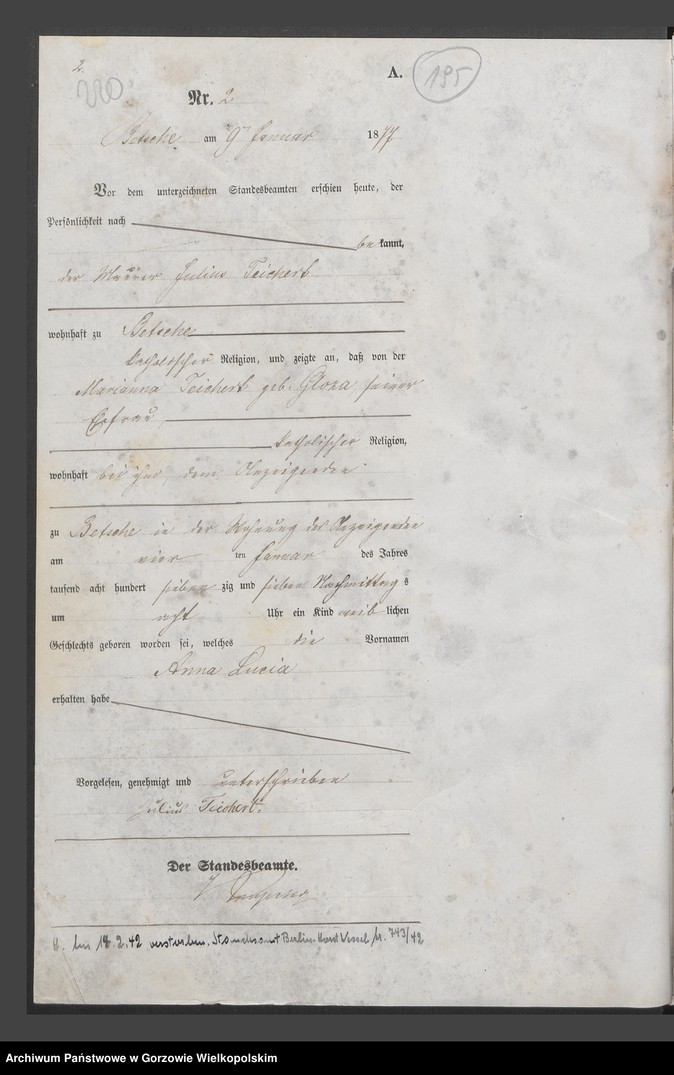 2.
220
A.
195
Nr. 2
Betsche am 9 Januar 1877
Vor dem unterzeichneten Standesbeamten erschien heute, der
Persönlichkeit nach
bekannt,
der Maurer Julius Teichert
wohnhaft zu Betsche
katholischer Religion, und zeigte an, daß von der
Marianna Teichert geb. Gloza seiner
Ehefrau
katholischer Religion,
wohnhaft bei ihm, dem Anzeigenden
zu Betsche in der Wohnung des Anzeigenden
am vier ten Januar des Jahres
tausend acht hundert sieben zig und sieben Nachmittags
um acht Uhr ein Kind weiblichen
Geschlechts geboren worden sei, welches die Vornamen
Anna Lucia
erhalten habe
Vorgelesen, genehmigt und unterschrieben
Julius Teichert.
Der Standesbeamte.
18.2.42 verstorben. Standesamt Berlin-Horst Wessel Nr. 743/42
Archiwum Państwowe w Gorzowie Wielkopolskim